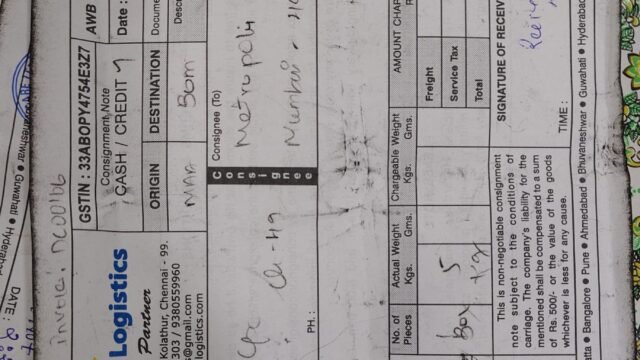 GSTIN : 33ABOPY4754E3Z7
AWB
Consignment Note
CASH / CREDIT
Date :
Logistics
Partner
Kolathur, Chennai - 99.
303 / 9380559960
s@gmail.com
logistics.com
ORIGIN
DESTINATION
MAA
Bom
Consignee
Consignee (To)
Metropoli
Mumbai
Ch-49
PH :
No. of Pieces
Actual Weight
Kgs. Gms.
Chargeable Weight
Kgs. Gms.
AMOUNT CHAR
Freight
Service Tax
Total
1 Box
5 Kg
This is non-negotiable consignment
note subject to the conditions of
carriage. The company's liability for the
mentioned shall be compensated to a sum
of Rs. 500/- or the value of the goods
whichever is less for any cause.
SIGNATURE OF RECEIV
TIME :
atta • Bangalore • Pune • Ahmedabad • Bhuvaneshwar • Guwahati • Hyderabad
aneshwar • Guwahati • Hyderabad
DATE :